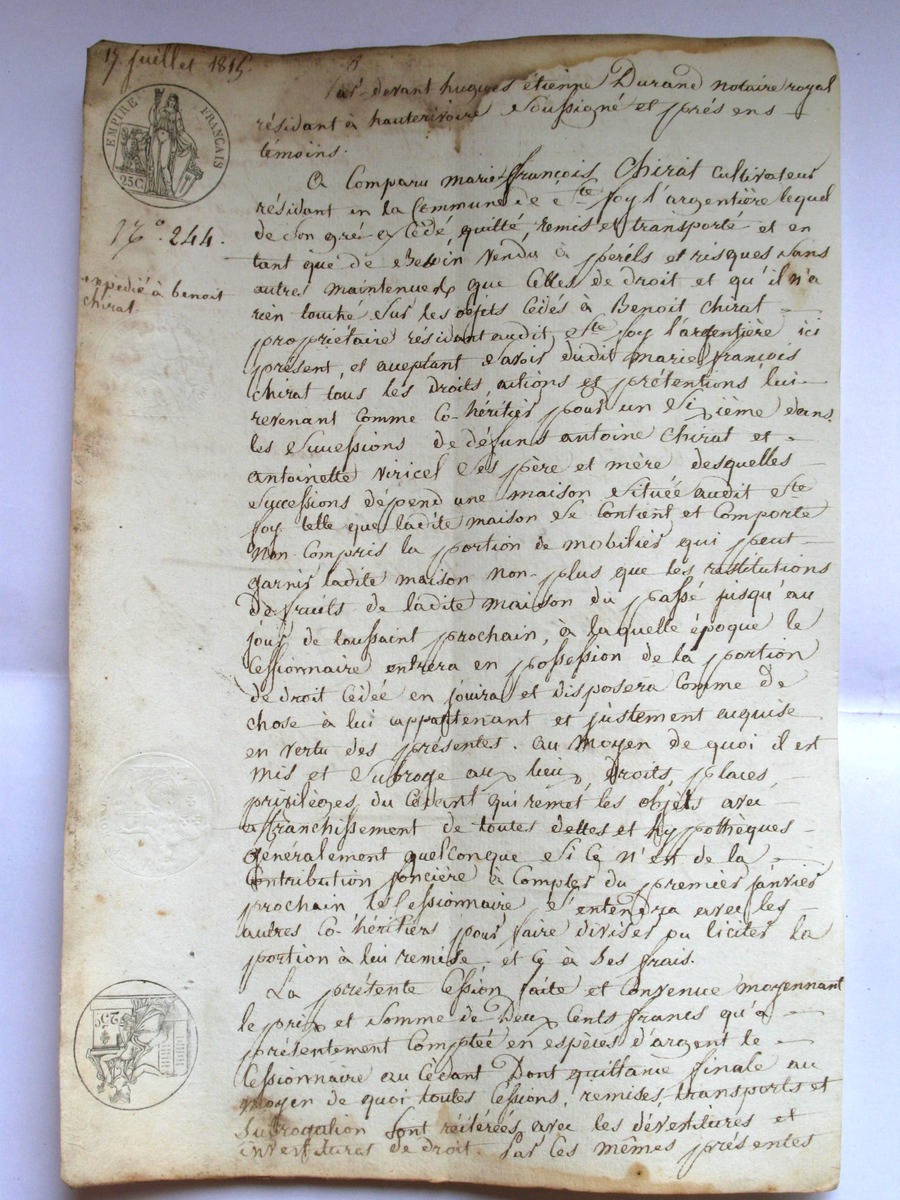 17 juillet 1815
EMPIRE FRANÇAIS
25C
N.° 244.
expédié à benoit
chirat
Par devant hugues étienne Durand notaire royal
résidant à hauterivoire soussigné et présens
témoins.
A Comparu marie-françois Chirat cultivateur
résidant en la Commune de Ste foy l'argentière lequel
de son gré a Cédé, quitté, remis et transporté et en
tant que de besoin Vendu à périls et risques sans
autres maintenues que Celles de droit et qu'il n'a
rien touché sur les objets Cédés à Benoit Chirat
propriétaire résidant audit Ste foy l'argentière ici
présent, et acceptant d'avoir dudit marie françois
Chirat tous les droits actions et prétentions lui
revenant Comme Co-héritier pour un Sixième dans
les successions de défunts antoine Chirat et
antoinette Viricel ses père et mère desquelles
successions dépend une maison située audit Ste
foy telle que ladite maison se Contient et Comporte
non Compris la portion de mobilier qui peut
garnir ladite maison non-plus que les restitutions
de fruits de ladite maison du passé jusqu'au
jour de toussaint prochain, à laquelle époque le
Cessionnaire entrera en possession de la portion
de droit Cédée en jouira et disposera Comme de
chose à lui appartenant et justement acquise
en vertu des présentes. au moyen de quoi il est
mis et subrogé aux lieux, Droits, places,
privilèges du Cédant qui remet les objets avec
affranchissement de toutes dettes et hypothèques
généralement quelconque si Ce n'est de la
Contribution foncière à Compter du premier janvier
prochain le Cessionnaire s'entendra avec les
autres Co-héritiers pour faire diviser ou liciter la
portion à lui remise et Ce à ses frais.
La présente Cession faite et convenue moyennant
le prix et somme de Deux Cents francs qu'a
présentement Comptée en espèces d'argent le
Cessionnaire au Cédant Dont quittance finale au
moyen de quoi toutes Cessions, remises, transports et
subrogation sont réitérées avec les dévestitures et
investitures de droit. Par Ces mêmes présentes
25C